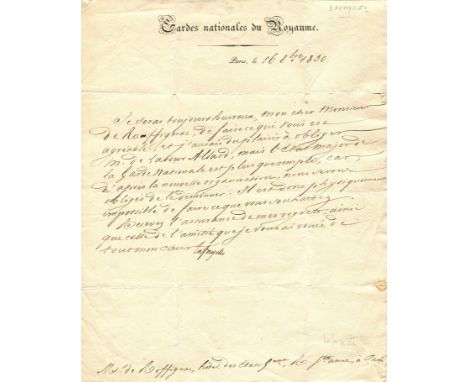 Gardes nationales du Royaume.
Paris, le 16 8bre 1830
Je serai toujours heureux, mon cher Monsieur
de Roffignac, de faire ce qui vous est
agréable, et j'aurais du plaisir à obliger
M. de Labeur Allard, mais l'Etat major de
la Garde Nationale est plus que rempli, car
d'après la nouvelle organisation, nous serons
obligés de le diminuer. Il est donc physiquement
impossible de faire ce que vous souhaitez.
Recevez l'assurance de mes regrets, ainsi
que celle de l'amitié que je vous ai vouée de
tout mon coeur Lafayette
Lafayette
Mr. de Roffignac, hôtel des Etats Unis, R. Ste anne, à Paris